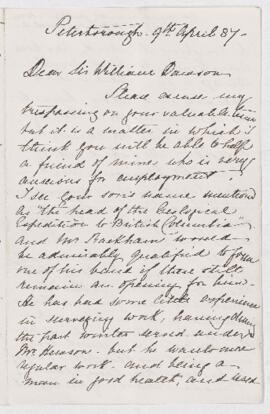 Peterborough. 9th April 87-
Dear Sir William Dawson
Please excuse my
trespassing on your valuable time
but it is a matter in which I
think you will be able to help
a friend of mine who is very
anxious for employment.
I see your son's name mentioned
as "the head of the Geological
Expedition to British Columbia"
and Mr would
be admirably qualified to form
one of his band if there still
remains an opening for him.
He has had some little experience
in surveying work, having during
the past winter served under
Mr. but he wants more
regular work. and being a
man in good health, and used